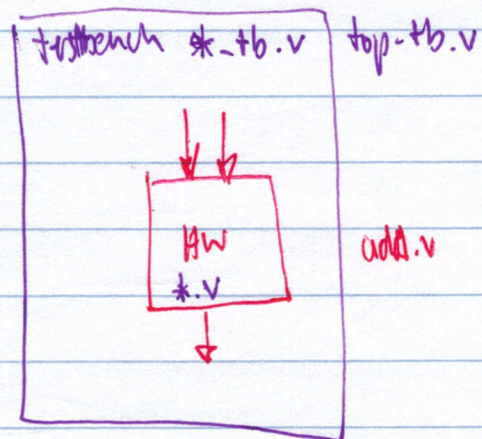 testbench *-tb.v top-tb.v
HW add.v
*.v